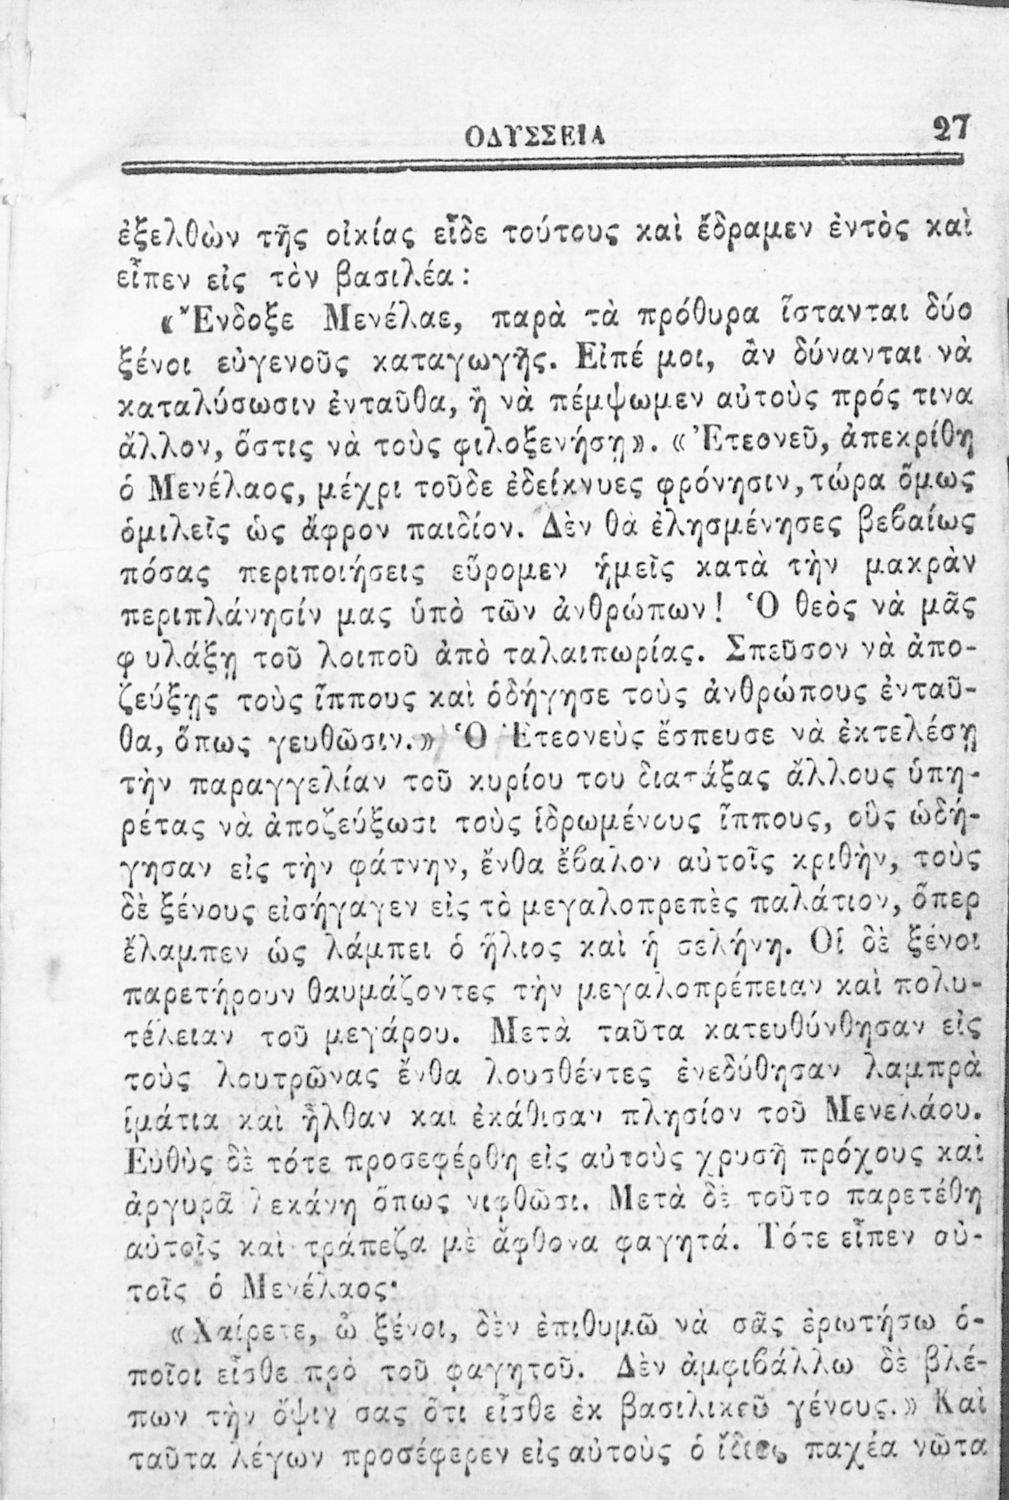 ΟΔΥΣΣΕΙΑ 27
ἐξελθὼν τῆς οἰκίας εἶδε τούτους καὶ ἔδραμεν ἐντὸς καὶ
εἶπεν εἰς τὸν βασιλέα:
«Ἔνδοξε Μενέλαε, παρὰ τὰ πρόθυρα ἵστανται δύο
ξένοι εὐγενοῦς καταγωγῆς. Εἰπέ μοι, ἂν δύνανται νὰ
καταλύσωσιν ἐνταῦθα, ἢ νὰ πέμψωμεν αὐτοὺς πρός τινα
ἄλλον, ὅστις νὰ τοὺς φιλοξενήσῃ». «Ἐτεονεῦ, ἀπεκρίθη
ὁ Μενέλαος, μέχρι τοῦδε ἐδείκνυες φρόνησιν, τώρα ὅμως
ὁμιλεῖς ὡς ἄφρον παιδίον. Δὲν θὰ ἐλησμόνησες βεβαίως
πόσας περιποιήσεις εὕρομεν ἡμεῖς κατὰ τὴν μακρὰν
περιπλάνησίν μας ὑπὸ τῶν ἀνθρώπων! Ὁ θεὸς νὰ μᾶς
φυλάξῃ τοῦ λοιποῦ ἀπὸ ταλαιπωρίας. Σπεῦσον νὰ ἀπο-
ζεύξῃς τοὺς ἵππους καὶ ὁδήγησε τοὺς ἀνθρώπους ἐνταῦ-
θα, ὅπως γευθῶσιν.» Ὁ Ἐτεονεὺς ἔσπευσε νὰ ἐκτελέσῃ
τὴν παραγγελίαν τοῦ κυρίου του διατάξας ἄλλους ὑπη-
ρέτας νὰ ἀποζεύξωσι τοὺς ἱδρωμένους ἵππους, οὓς ὡδή-
γησαν εἰς τὴν φάτνην, ἔνθα ἔβαλον αὐτοῖς κριθὴν, τοὺς
δὲ ξένους εἰσήγαγεν εἰς τὸ μεγαλοπρεπὲς παλάτιον, ὅπερ
ἔλαμπεν ὡς λάμπει ὁ ἥλιος καὶ ἡ σελήνη. Οἱ δὲ ξένοι
παρετήρουν θαυμάζοντες τὴν μεγαλοπρέπειαν καὶ πολυ-
τέλειαν τοῦ μεγάρου. Μετὰ ταῦτα κατευθύνθησαν εἰς
τοὺς λουτρῶνας ἔνθα λουσθέντες ἐνεδύθησαν λαμπρὰ
ἱμάτια καὶ ἦλθαν και ἐκάθισαν πλησίον τοῦ Μενελάου.
Εὐθὺς δὲ τότε προσεφέρθη εἰς αὐτοὺς χρυσῆ πρόχους καὶ
ἀργυρᾶ λεκάνη ὅπως νιφθῶσι. Μετὰ δὲ τοῦτο παρετέθη
αὐτοῖς καὶ τράπεζα μὲ ἄφθονα φαγητά. Τότε εἶπεν αὐ-
τοῖς ὁ Μενέλαος·
«Χαίρετε, ὦ ξένοι, δὲν ἐπιθυμῶ νὰ σᾶς ἐρωτήσω ὁ-
ποῖοι εἶσθε πρὸ τοῦ φαγητοῦ. Δὲν ἀμφιβάλλω δὲ βλέ-
πων τὴν ὄψιν σας ὅτι εἶσθε ἐκ βασιλικοῦ γένους.» Καὶ
ταῦτα λέγων προσέφερεν εἰς αὐτοὺς ὁ ἴδιος παχέα νῶτα